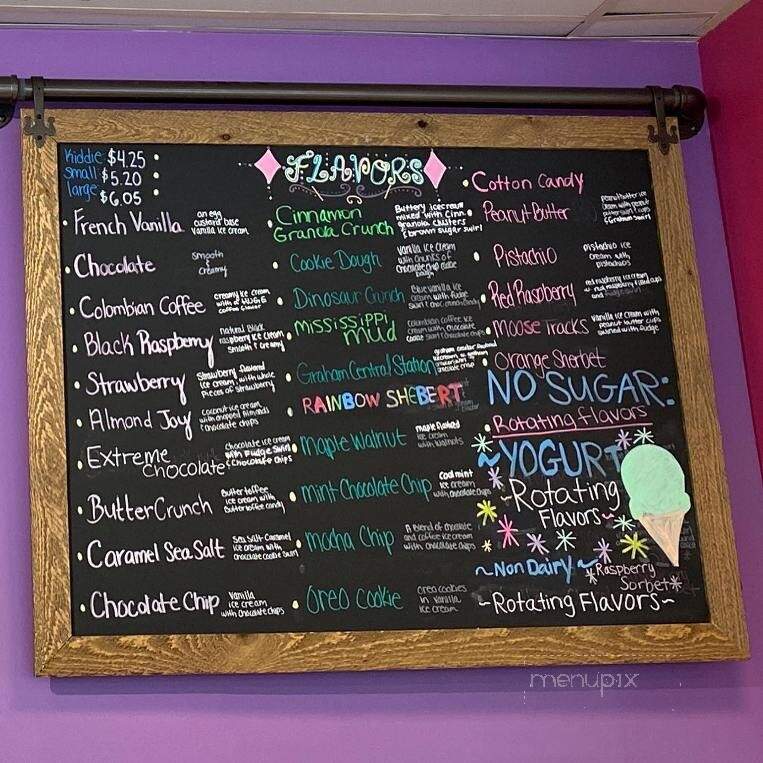 Kiddie $4.25
Small $5.20
large $6.05
FLAVORS
French Vanilla
an egg
custard base
vanilla ice cream
Chocolate
smooth
&
creamy
Colombian Coffee
creamy ice cream
with a HUGE
coffee flavor
Black Raspberry
natural black
raspberry ice cream
smooth & creamy
Strawberry
Strawberry flavored
ice cream, with whole
pieces of strawberry
Almond Joy
coconut ice cream
with chopped almonds
& chocolate chips
Extreme
Chocolate
chocolate ice cream
with fudge swirl
& chocolate chips
ButterCrunch
butter toffee
ice cream with
buttertoffee candy
Caramel Sea Salt
Sea Salt Caramel
ice cream with
chocolate cookie swirl
Chocolate Chip
vanilla
ice cream
with chocolate chips
Cinnamon
Granola Crunch
Buttery ice cream
mixed with cinn.
granola clusters
& brown sugar swirl
Cookie Dough
vanilla ice cream
with chunks of
chocolate chip cookie
dough
Dinosaur Crunch
blue vanilla ice
cream with fudge
swirl
MISSISSIPPI
mud
coffee ice
cream with chocolate
cookie swirl & chocolate chips
Graham Central Station
RAINBOW SHEBERT
Maple Walnut
maple flavored
ice cream
with walnuts
mint Chocolate Chip
cool mint
ice cream
with chocolate chips
mocha Chip
A blend of chocolate
and coffee ice cream
with chocolate chips
Oreo Cookie
Oreo cookies
in vanilla
ice cream
Cotton Candy
Peanut Butter
peanut butter ice
cream with peanut
Pistachio
pistachio ice
cream with
pistachios
Red Raspberry
red raspberry ice cream
Moose Tracks
vanilla ice cream with
peanut butter cups
swirled with fudge
Orange Sherbet
NO SUGAR:
Rotating flavors
~YOGURT
~Rotating
Flavors~
~Non Dairy~
*Raspberry
Sorbet*
~Rotating Flavors~
menupix